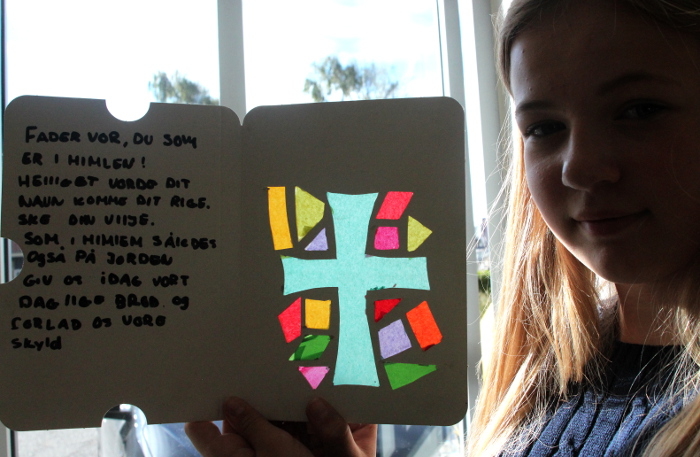 FADER VOR, DU SOM
ER I HIMLEN!
HEIIIGET VORDE DIT
NAVN KOMME DIT RIGE.
SKE DIN VIIJE.
SOM I HIMIEM SÅIEDES
OGSÅ PÅ JORDEN
GIV OS IDAG VORT
DAGIIGE BRØD. Og
FORLAD OS VORE
SKYID